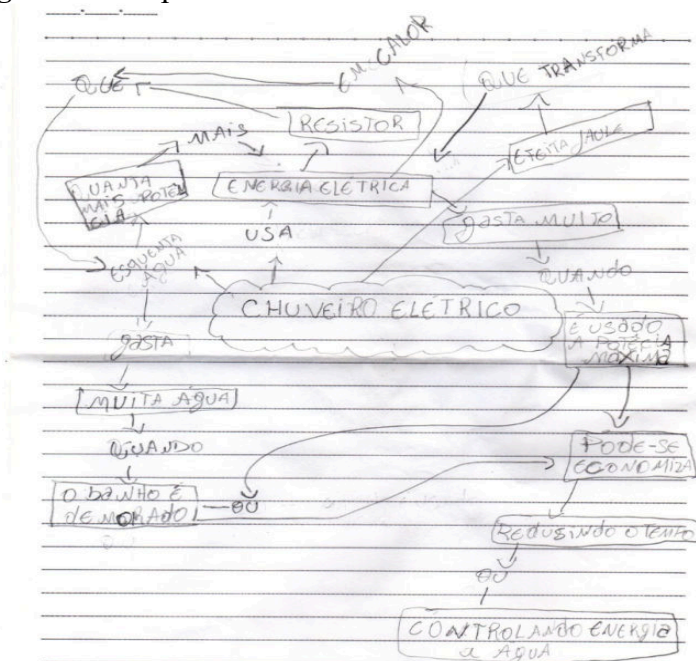 EM CALOR
QUE TRANSFORMA
QUE
RESISTOR
MAIS
EFEITO JAULE
QUANTA
MAIS POTEN
CIA
ENERGIA ELÉTRICA
gASTA MUITO
USA
ESQUENTA
ÁGUA
QUANDO
CHUVEIRO ELÉTRICO
É USADO
A POTÊCIA
MÁXIMA
gASTA
MUITA ÁgUA
QUANDO
PODE-SE
ECONOMIZA
O bANHO É
dEMORADO
OU
REDUSINDO O TEMPO
OU
CONTROLANDO ENERgIA
a ÁgUA